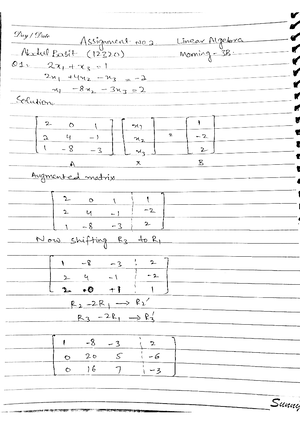 Day / Date
Assignment No 2 Linear Algebra
Abdul Basit (12320) Morning - 3B
Q1: 2x₁ + x₃ = 1
2x₁ + 4x₂ - x₃ = -2
x₁ - 8x₂ - 3x₃ = 2
Solution
2 0 1 x₁ 1
2 4 -1 x₂ = -2
1 -8 -3 x₃ 2
A X B
Augmented matrix
2 0 1 1
2 4 -1 -2
1 -8 -3 2
Now shifting R₃ to R₁
1 -8 -3 2
2 4 -1 -2
2 +0 +1 1
R₂ - 2R₁ → R₂'
R₃ - 2R₁ → R₃'
1 -8 -3 2
0 20 5 -6
0 16 7 -3
Sunny